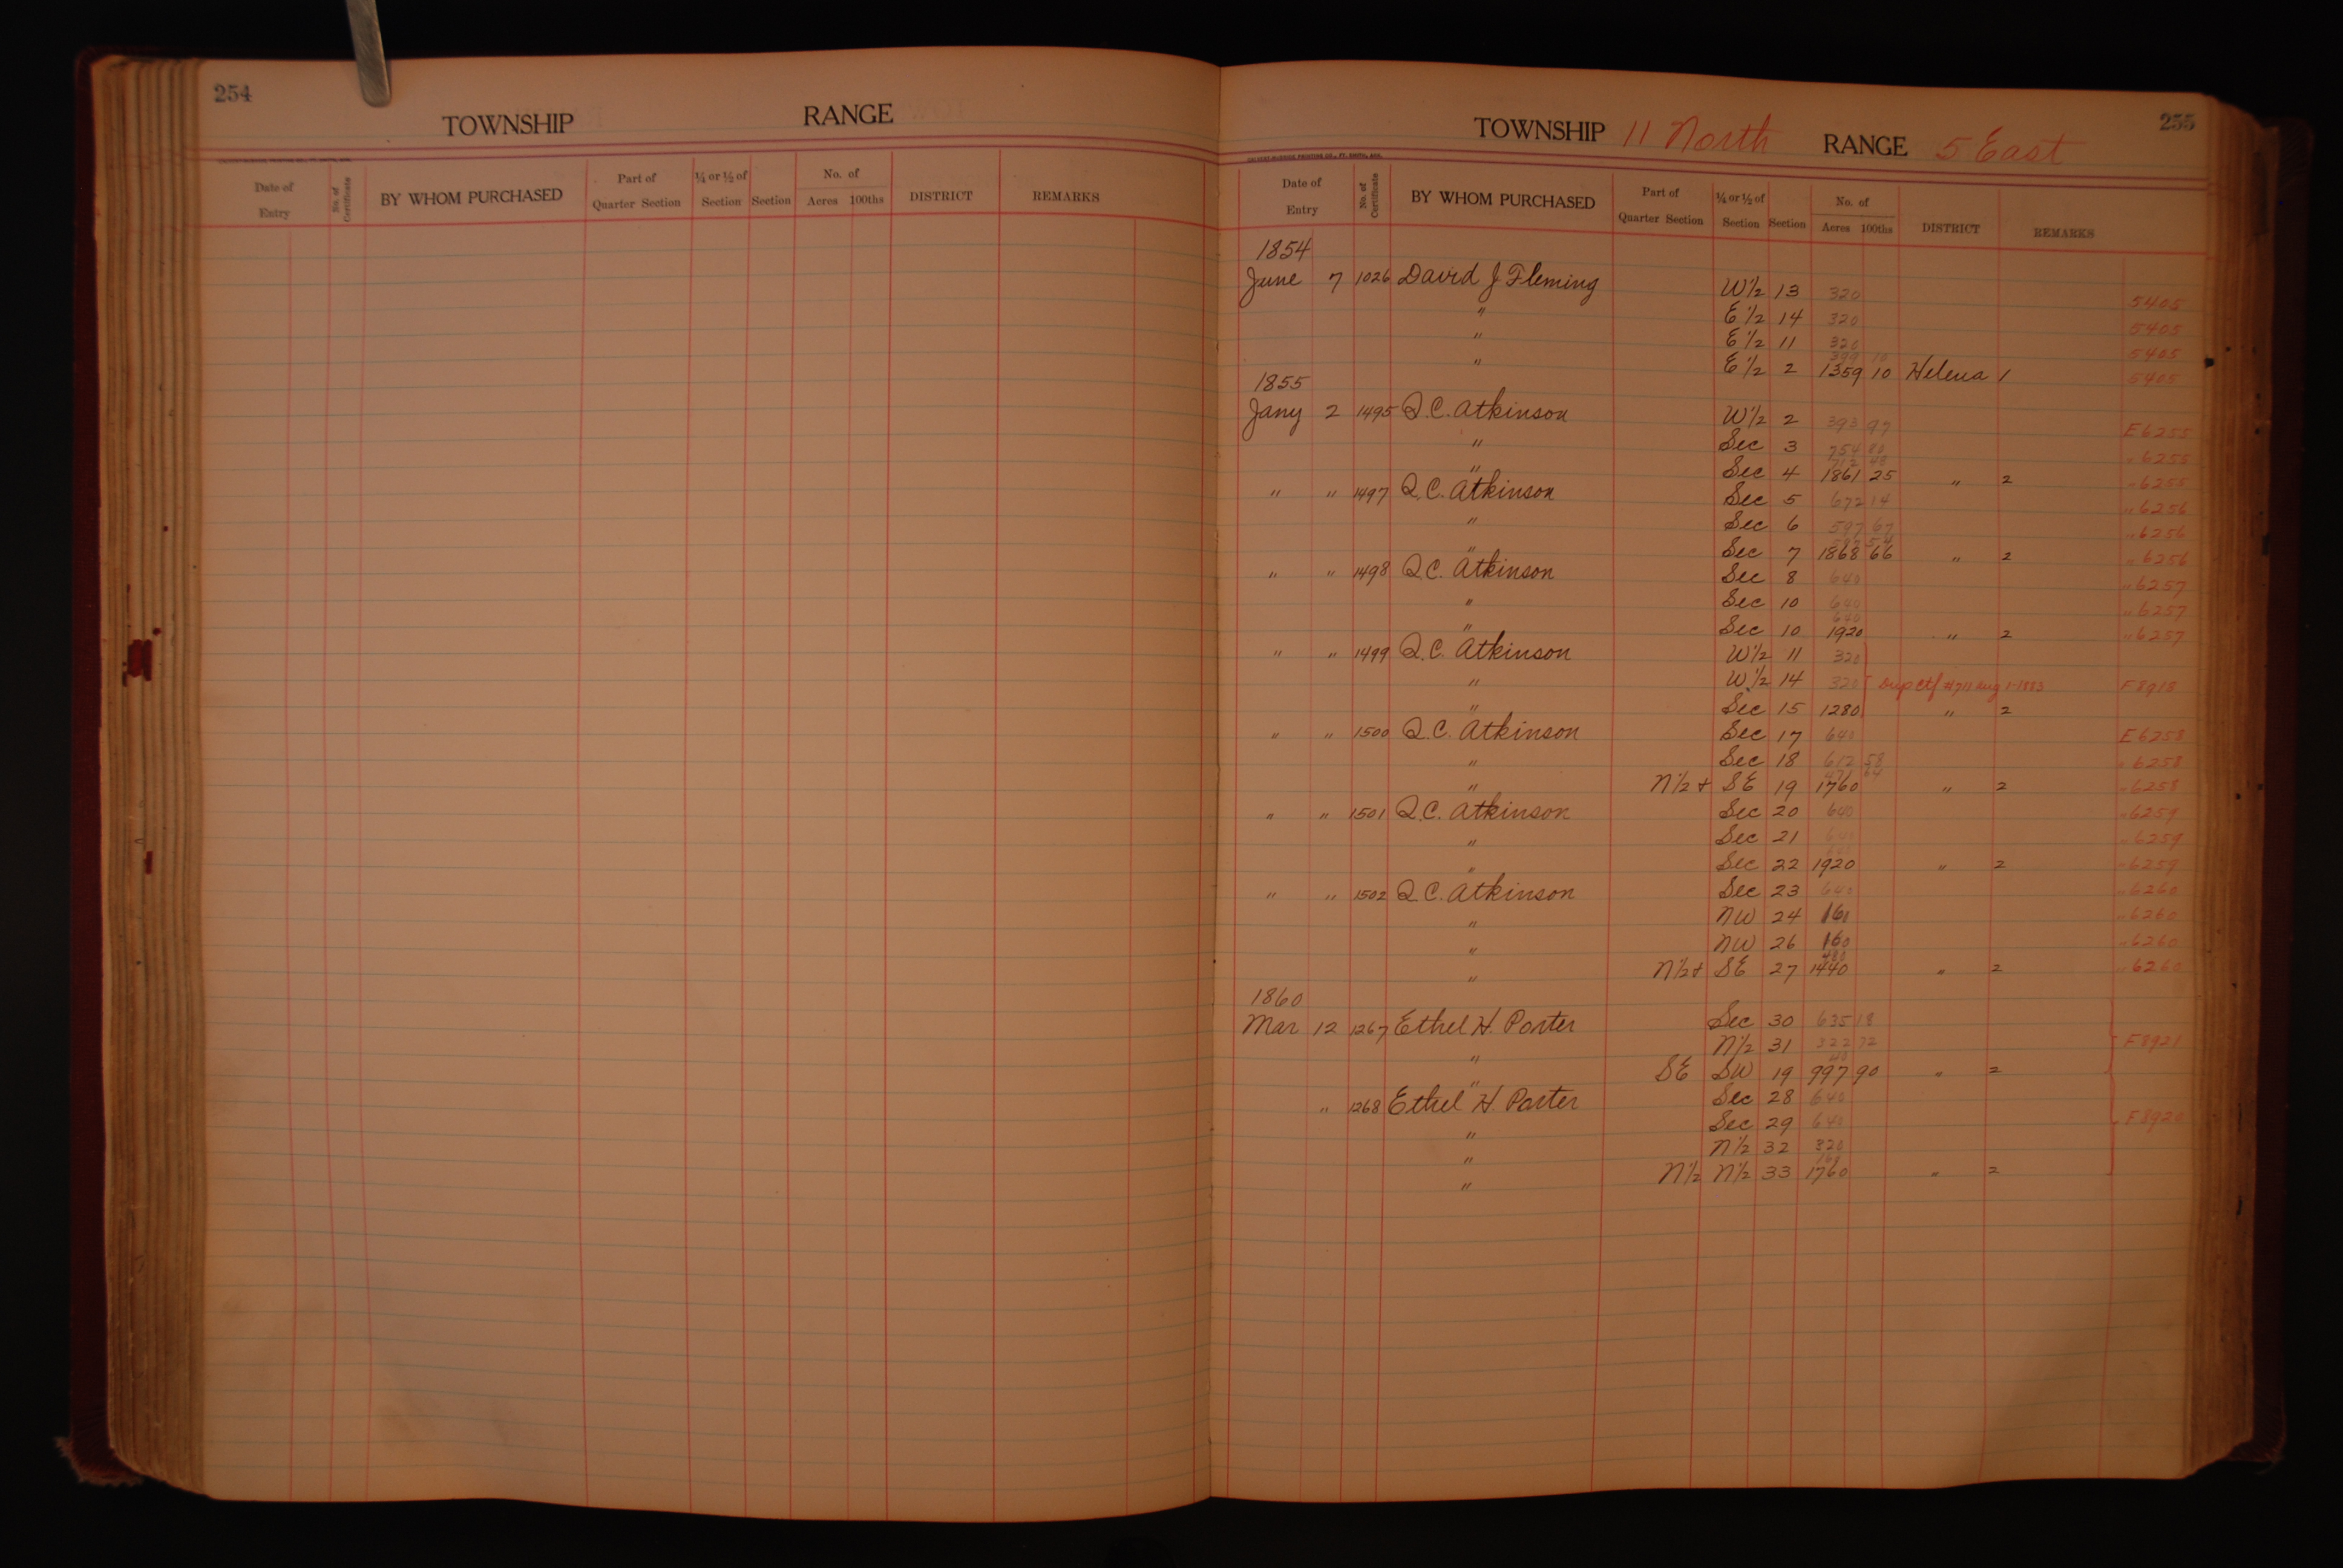 254
TOWNSHIP RANGE
Date of Entry No. of Certificate BY WHOM PURCHASED Part of Quarter Section ¼ or ½ of Section Section No. of Acres 100ths DISTRICT REMARKS
255
TOWNSHIP 11 North RANGE 5 East
Date of Entry No. of Certificate BY WHOM PURCHASED Part of Quarter Section ¼ or ½ of Section Section No. of Acres 100ths DISTRICT REMARKS
1854
June 7 1026 David J Fleming W½ 13 320 5405
" E½ 14 320 5405
" E½ 11 320 5405
399 10
" E½ 2 1359 10 Helena 1 5405
1855
Jany 2 1495 Q.C. Atkinson W½ 2 393 97 E6255
" Sec 3 754 80 " 6255
712 48
" Sec 4 1861 25 " 2 " 6255
" " 1497 Q.C. Atkinson Sec 5 672 14 " 6256
" Sec 6 597 67 " 6256
" Sec 7 1868 66 " 2 " 6256
" " 1498 Q.C. Atkinson Sec 8 640 " 6257
" Sec 10 640 " 6257
640
" Sec 10 1920 " 2 " 6257
" " 1499 Q.C. Atkinson W½ 11 320
" W½ 14 320 Dup Ctf Aug 1-1883 F8918
" Sec 15 1280 " 2
" " 1500 Q.C. Atkinson Sec 17 640 E6258
" Sec 18 612 58 " 6258
" N½ + SE 19 1760 " 2 " 6258
" " 1501 Q.C. Atkinson Sec 20 640 " 6259
" Sec 21 640 " 6259
" Sec 22 1920 " 2 " 6259
" " 1502 Q.C. Atkinson Sec 23 640 " 6260
" NW 24 160 " 6260
" NW 26 160 " 6260
480
" N½ + SE 27 1440 " 2 " 6260
1860
Mar 12 1267 Ethel H. Porter Sec 30 635 18
" N½ 31 322 72 F8921
40
" SE SW 19 997 90 " 2
" 1268 Ethel H. Porter Sec 28 640
" Sec 29 640 F8920
" N½ 32 320
160
" N½ N½ 33 1760 " 2